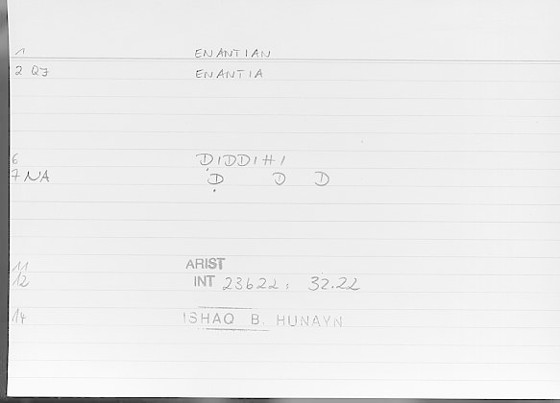 1 ENANTIAN
2 QJ ENANTIA
6 DIDDIHI
7 NA D D D
11 ARIST
12 INT 23b22, 32.22
14 ISHAQ B. HUNAYN